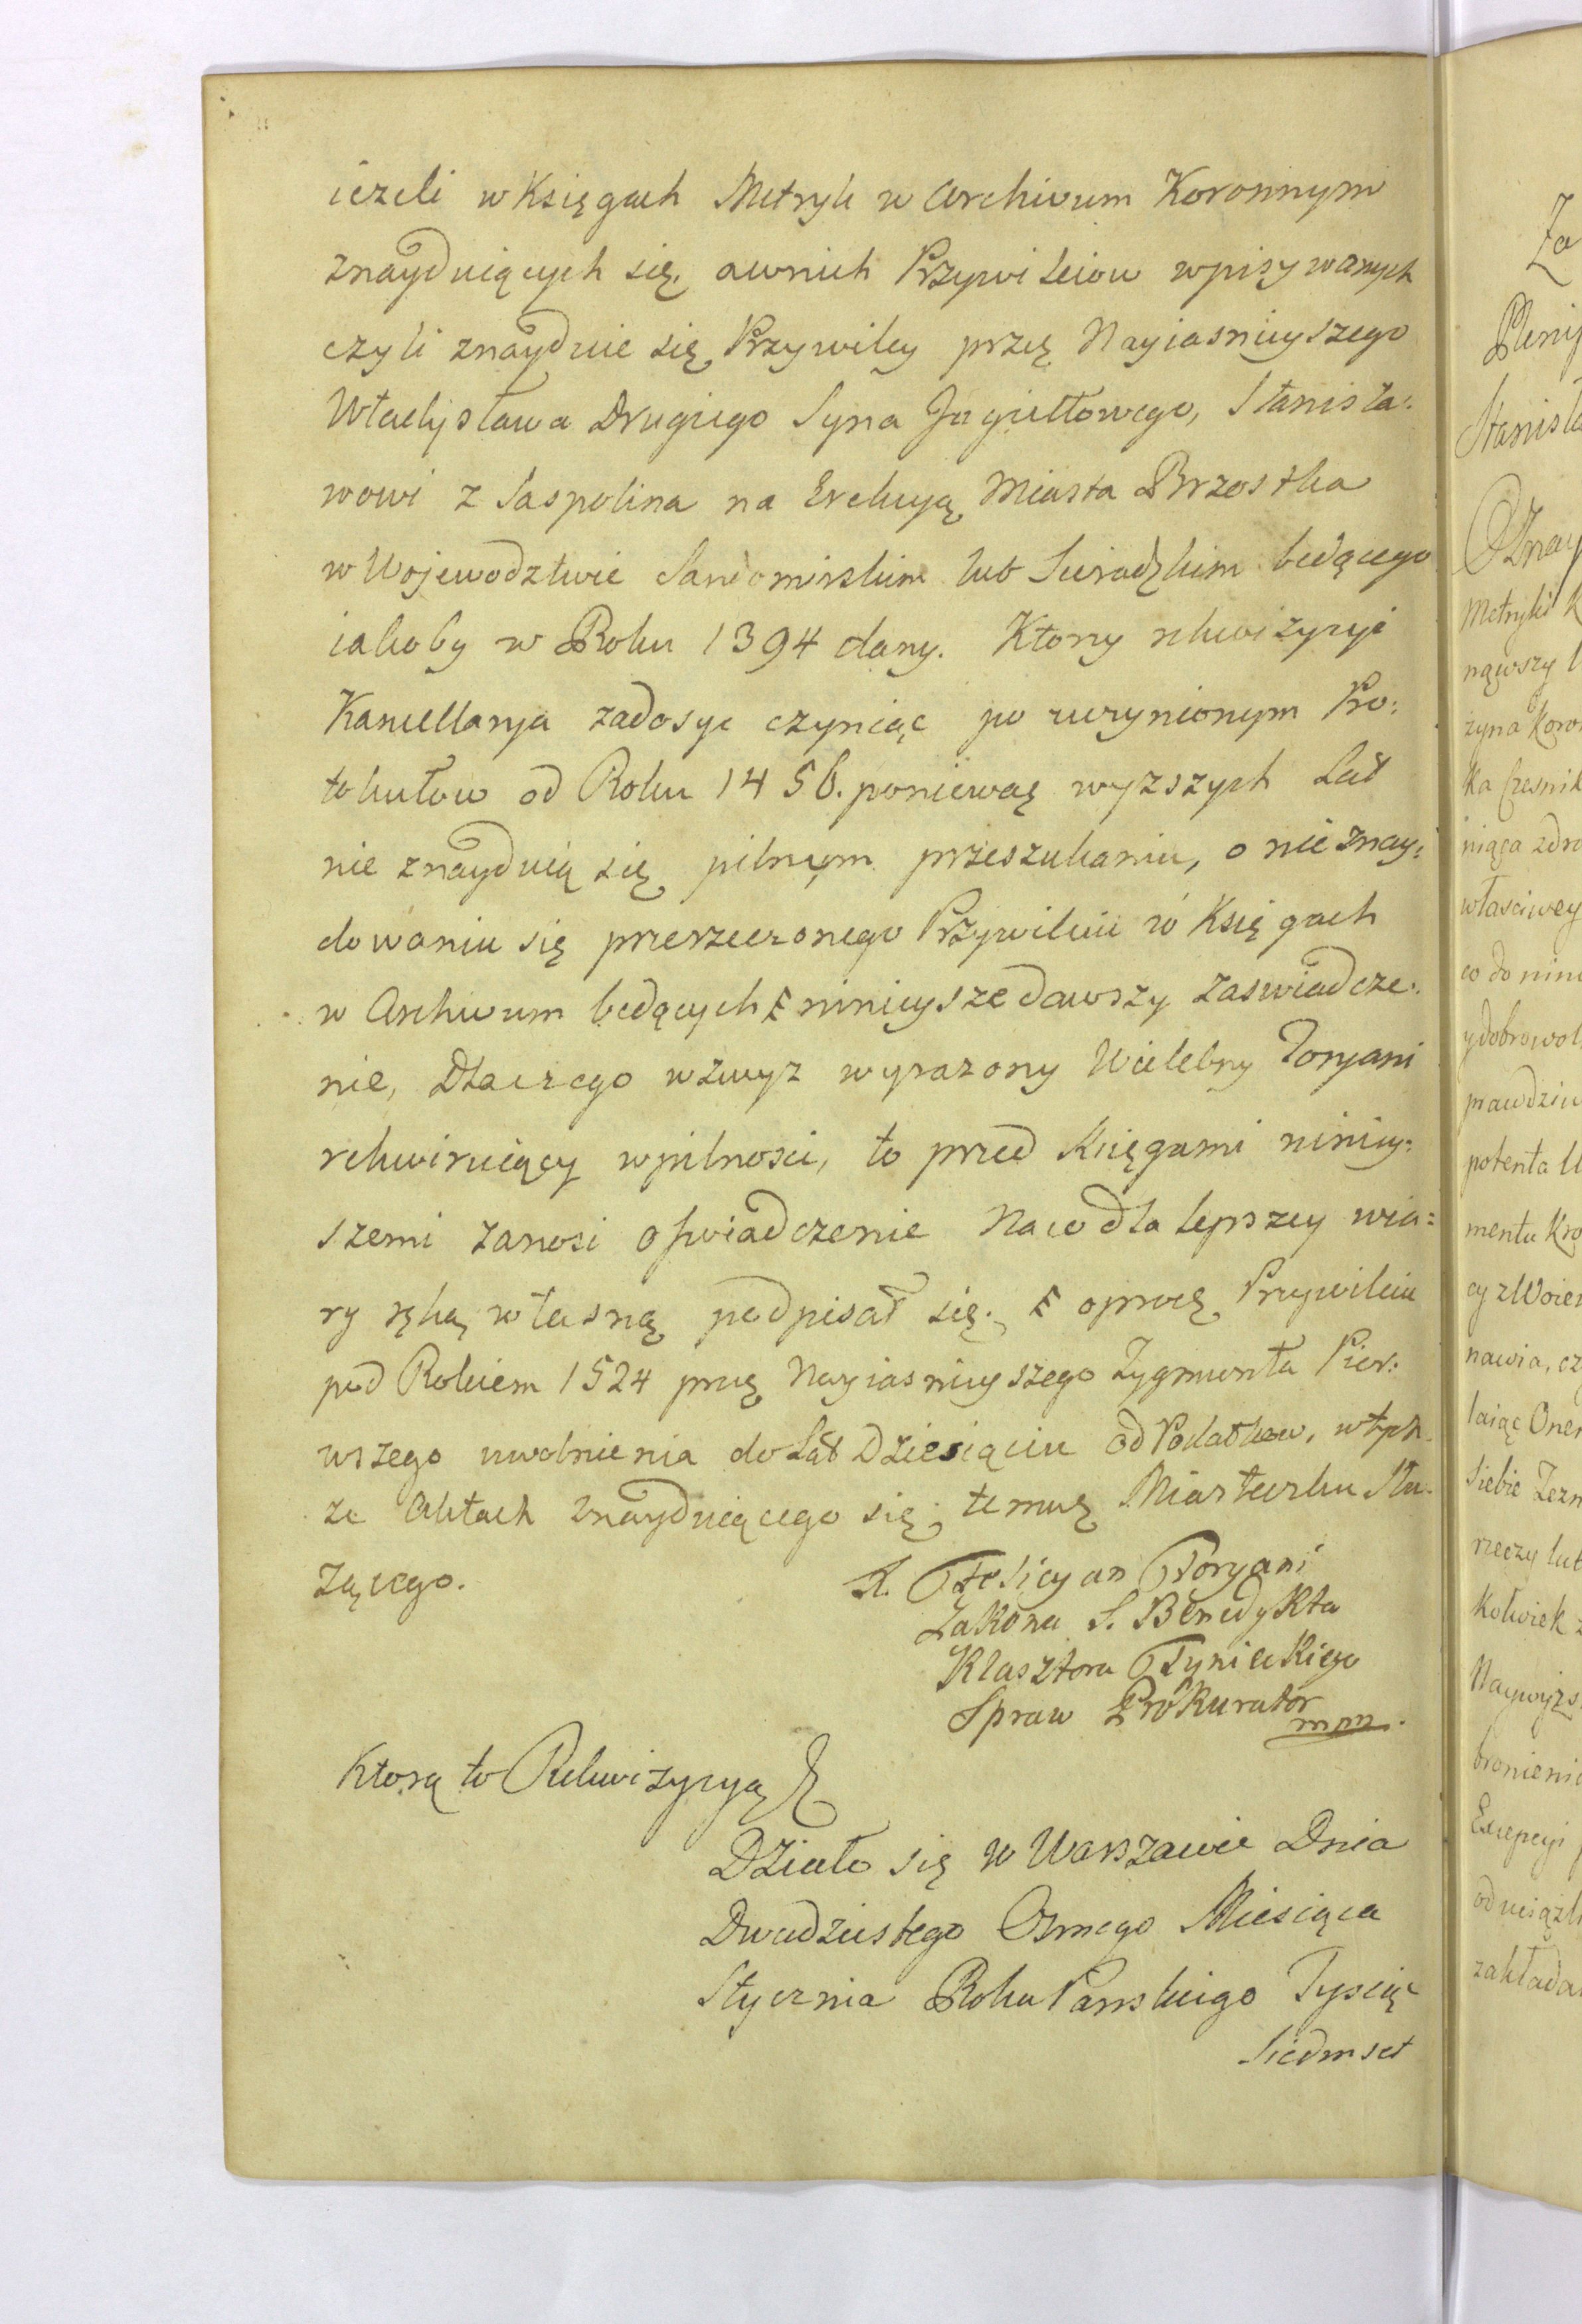 iezeli w Księgach Metryk w Archivum Koronnym
znayduiących się, awnich Przywileiow wpisywanych
czyli znayduie się Przywiley przeę Nayiasnieyszego
Władysława Drugiego Syna Jagiełłowego, Stanisła:
wowi z Jaspolina na Erekcyą Miasta Brzostka
w Wojewodztwie Sandomirskim lub Sieradzkim będącego
iakoby w Roku 1394 dany. Ktory rekwizycyi
Kancellarya zadosyc czyniąc po uczynionym Pro:
tokułow od Roku 1456. poniewaę wyzszych Lat
nie znayduią się pilnym przeszukaniu, o nie znay:
dowaniu się przerzeczonego Przywileiu w Księgach
w Archivum będących ninieysze dawszy zaswiadcze:
nie, Dlaczego wzwyz wyrazony Wielebny Toryani
rekwiruiący wpilnosci, to przed Księgami niniey:
szemi zanosi oswiadczenie Naco dla lepszey wia:
ry ręką własną podpisał się. oprocę Przywileiu
pod Rokiem 1524 przeę Nayiasnieyszego Zygmunta Pier:
wszego uwolnienia do Lat Dziesiąciu od Podatkow, wtych
ze Aktach znayduiącego się, temuę Miasteczku Słu:
zącego.
X. Felicyan Toryani
Zakonu S. Benedykta
Klasztoru Tynieckiego
Spraw Prokurator
mpp.
Ktorą to Rekwizycyą
Działo się w Warszawie Dnia
Dwudziestego Osmego Miesiąca
Stycznia Roku Panskiego Tysiąc
Siedmset
Za
Plenip
Stanisła
Oznay
Metryki K
nąwszy
zyna Koro
ka Czesnik
niąca zdro
własciwey
co do nini
y dobrowol
prawdziw
potenta U
mentu Kro
cy z Woie
nawia, cz
laiąc One
Siebie Zezn
rzeczy lub
Kolwiek z
Naywyzs
bronieni
Excepcyi
od uciązli
zakłada